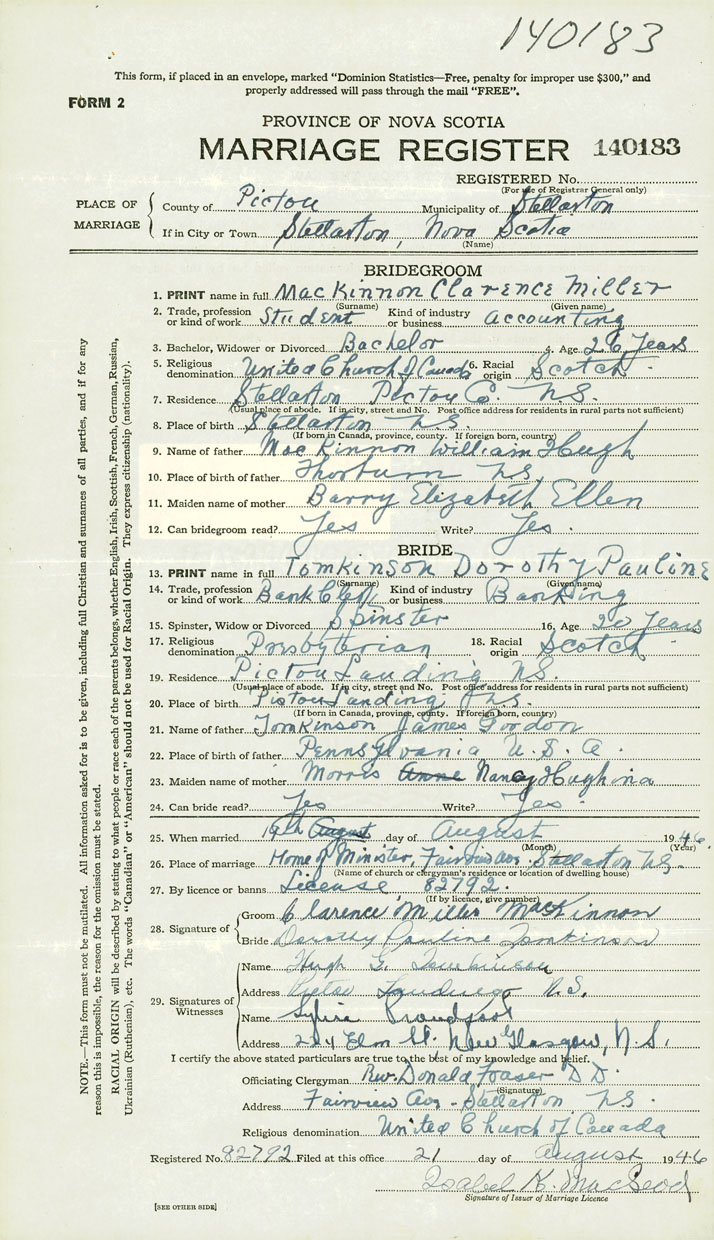 140183
This form, if placed in an envelope, marked "Dominion Statistics—Free, penalty for improper use $300," and
properly addressed will pass through the mail "FREE".
FORM 2
PROVINCE OF NOVA SCOTIA
MARRIAGE REGISTER 140183
REGISTERED No.
(For use of Registrar General only)
PLACE OF MARRIAGE
County of Pictou Municipality of Stellarton
If in City or Town Stellarton, Nova Scotia
(Name)
BRIDEGROOM
1. PRINT name in full MacKinnon Clarence Miller
(Surname) (Given name)
2. Trade, profession or kind of work Student Kind of industry or business accounting
3. Bachelor, Widower or Divorced Bachelor 4. Age 26 Years
5. Religious denomination United Church of Canada 6. Racial origin Scotch
7. Residence Stellarton Pictou Co. N.S.
(Usual place of abode. If in city, street and No. Post office address for residents in rural parts not sufficient)
8. Place of birth Stellarton N.S.
(If born in Canada, province, county. If foreign born, country)
9. Name of father MacKinnon William Hugh
10. Place of birth of father Thorburn N.S.
11. Maiden name of mother Barry Elizabeth Ellen
12. Can bridegroom read? Yes Write? Yes.
BRIDE
13. PRINT name in full Tomkinson Dorothy Pauline
(Surname) (Given name)
14. Trade, profession or kind of work Bank Clerk Kind of industry or business Banking
15. Spinster, Widow or Divorced Spinster 16. Age 20 Years
17. Religious denomination Presbyterian 18. Racial origin Scotch
19. Residence Pictou Landing N.S.
(Usual place of abode. If in city, street and No. Post office address for residents in rural parts not sufficient)
20. Place of birth Pictou Landing N.S.
(If born in Canada, province, county. If foreign born, country)
21. Name of father Tomkinson James Gordon
22. Place of birth of father Pennsylvania U.S.A.
23. Maiden name of mother Morris Anne Nancy Hughina
24. Can bride read? Yes Write? Yes.
25. When married 19th August day of August 1946.
(Month) (Year)
26. Place of marriage Home of Minister, Fairview Ave. Stellarton N.S.
(Name of church or clergyman's residence or location of dwelling house)
27. By licence or banns License 82792.
(If by licence, give number)
28. Signature of
Groom Clarence Miller MacKinnon
Bride Dorothy Pauline Tomkinson
29. Signatures of Witnesses
Name Hugh G. Tomkinson
Address Pictou Landing N.S.
Name Sylvia Proudfoot
Address 204 Elm St. New Glasgow, N.S.
I certify the above stated particulars are true to the best of my knowledge and belief.
Officiating Clergyman Rev. Donald Fraser D.D.
(Signature)
Address Fairview Ave - Stellarton N.S.
Religious denomination United Church of Canada
Registered No. 82792 Filed at this office 21 day of August 1946
Isabel K. MacLeod
Signature of Issuer of Marriage Licence
[SEE OTHER SIDE]
NOTE.—This form must not be mutilated. All information asked for is to be given, including full Christian and surnames of all parties, and if for any
reason this is impossible, the reason for the omission must be stated.
RACIAL ORIGIN will be described by stating to what people or race each of the parents belongs, whether English, Irish, Scottish, French, German, Russian,
Ukrainian (Ruthenian), etc. The words "Canadian" or "American" should not be used for Racial Origin. They express citizenship (nationality).